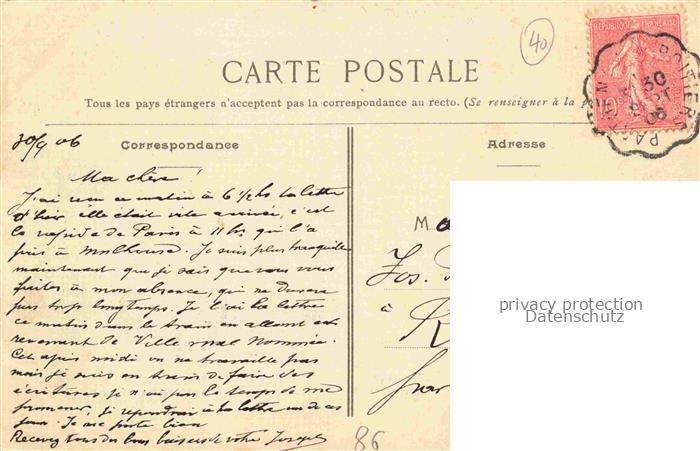 40
CARTE POSTALE
Tous les pays étrangers n'acceptent pas la correspondance au recto. (Se renseigner à la
RÉPUBLIQUE FRANÇAISE
30
06
86
30/9 06
Correspondance
Ma chère!
J'ai reçu ce matin à 6 1/2 hs ta lettre
d'hier, elle était vite arrivée, c'est
le rapide de Paris à 11 hs qui l'a
pris à Mulhouse. Je suis plus tranquille
maintenant que je sais que vous vous
faites à mon absence, qui ne durera
pas trop longtemps. Je l'ai lu la lettre
ce matin dans le train en allant et
revenant de Ville mal Nommée.
Cet après midi on ne travaille pas
mais je suis en train de faire des
écritures je n'ai pas le temps de me
promener, je répondrai à ta lettre un de ces
jours. Je me porte bien
Recevez tous des bons baisers de votre Joseph
Adresse
M
Jos.
à
sur
privacy protection
Datenschutz